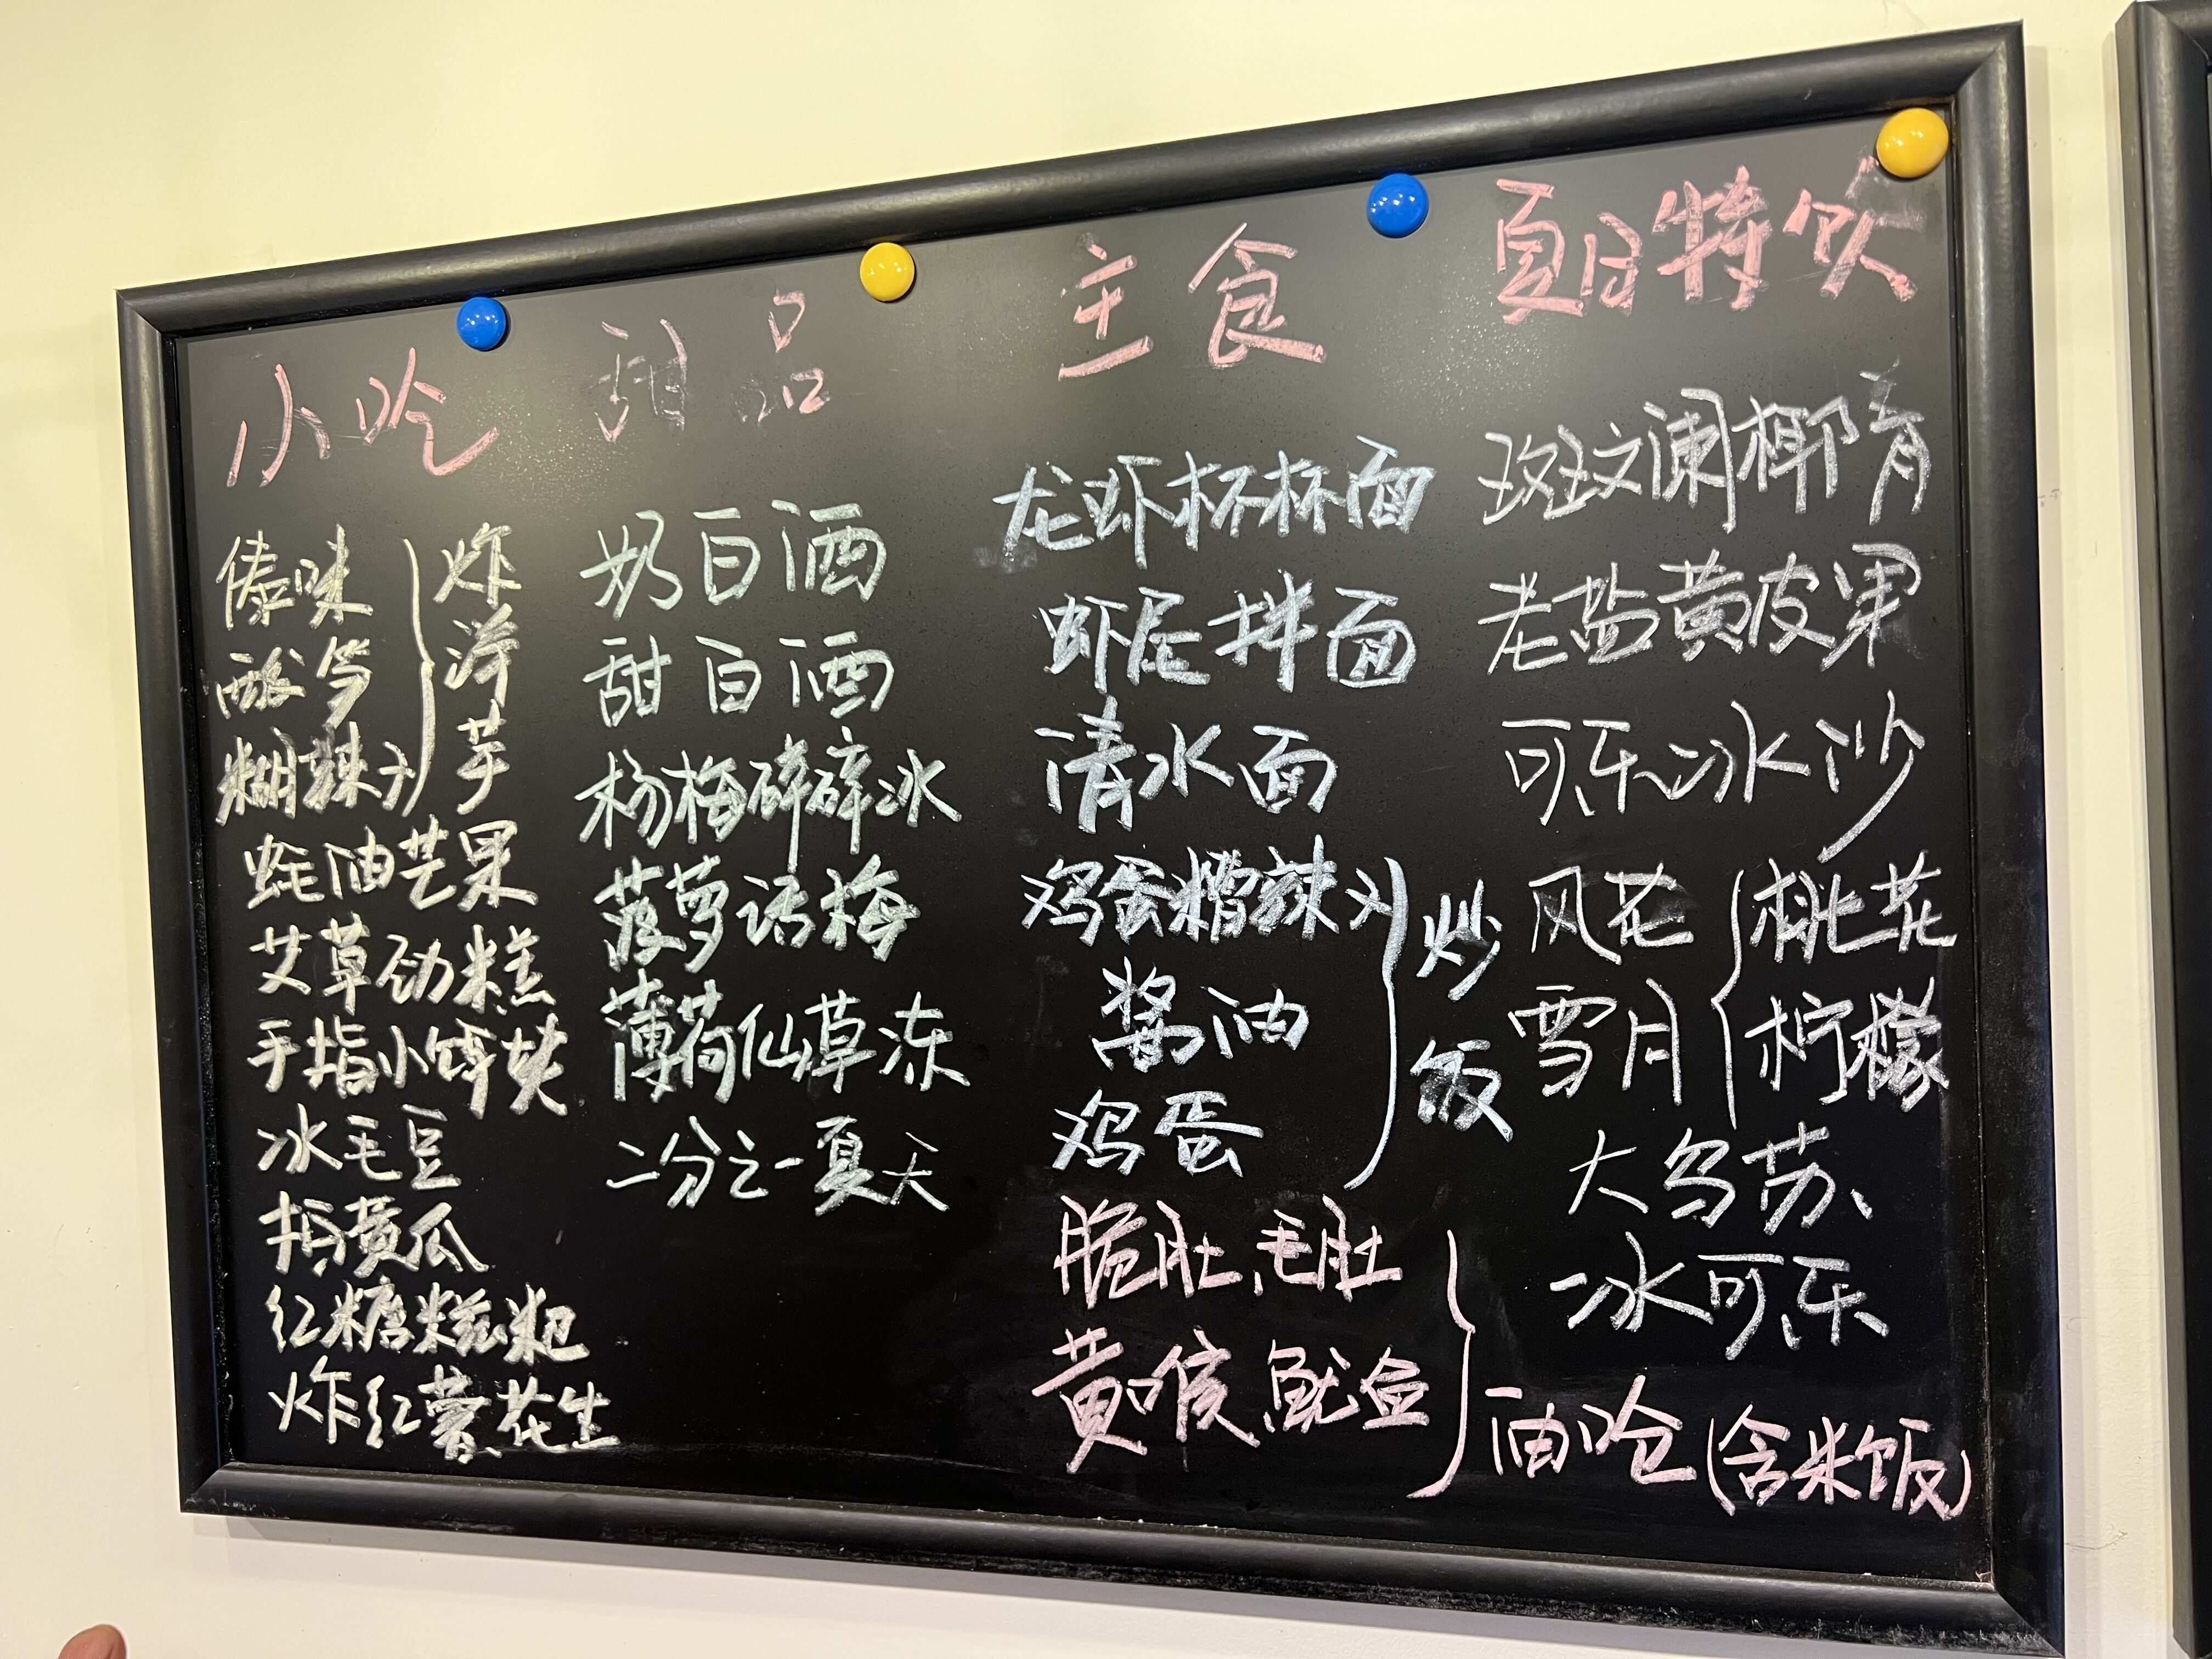 小吃
傣味
酸笋
糊辣子
炸洋芋
蚝油芒果
艾草劲糕
手指小饵块
冰毛豆
拍黄瓜
红糖糍粑
炸红薯、花生
甜品
奶白酒
甜白酒
杨梅碎碎冰
菠萝话梅
薄荷仙草冻
二分之一夏天
主食
龙虾杯杯面
虾尾拌面
清水面
鸡蛋糟辣子
酱油
鸡蛋
炒饭
脆肚、毛肚
黄喉、鱿鱼
油呛(含米饭)
夏日特饮
斑斓椰青
老盐黄皮果
可乐冰沙
风花
雪月
桃花
柠檬
大乌苏、
冰可乐